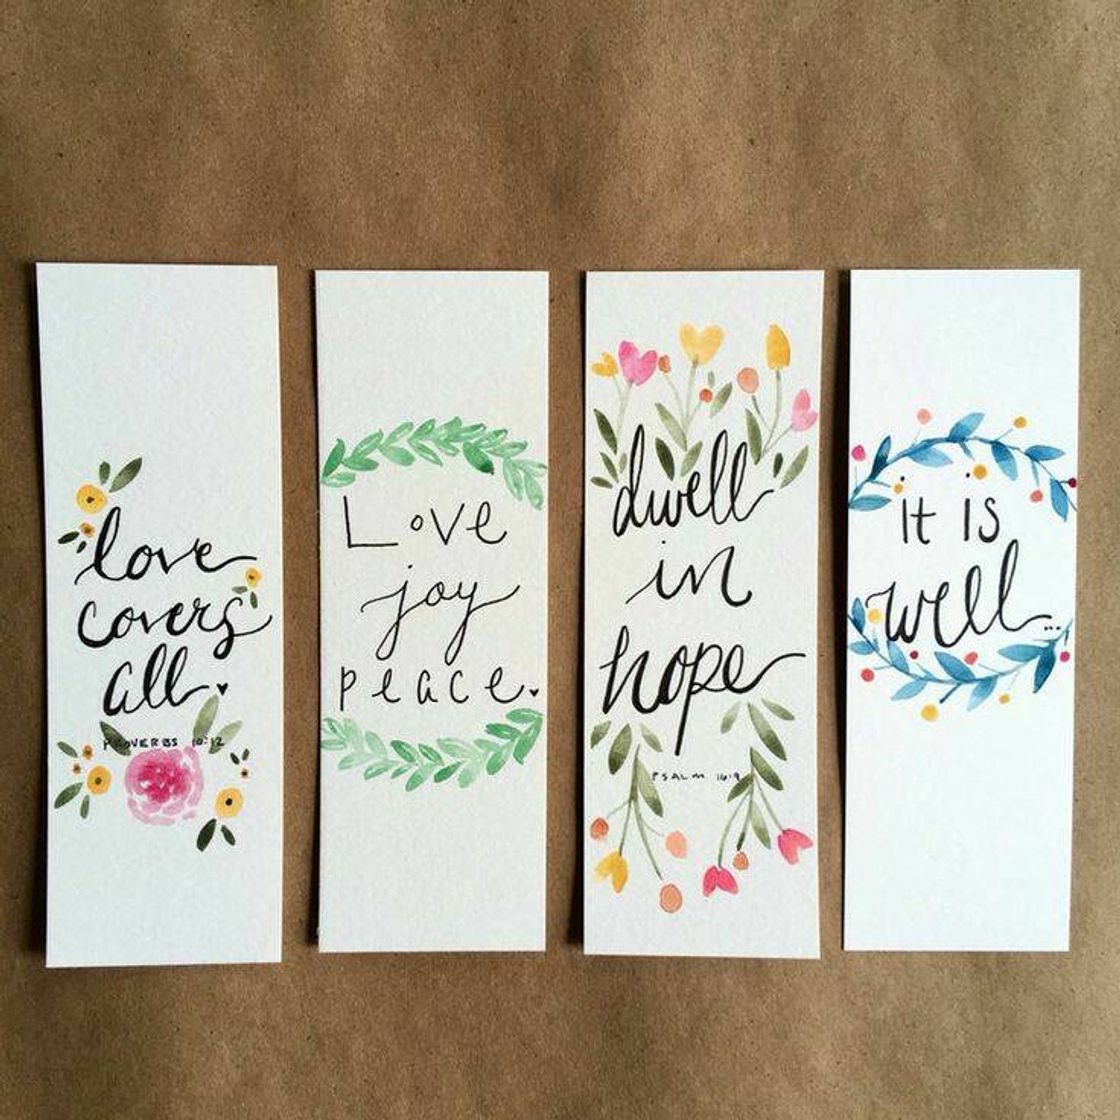 love
covers
all
PROVERBS 10:12
Love
joy
peace.
dwell
in
hope
PSALM 16:9
it is
well...